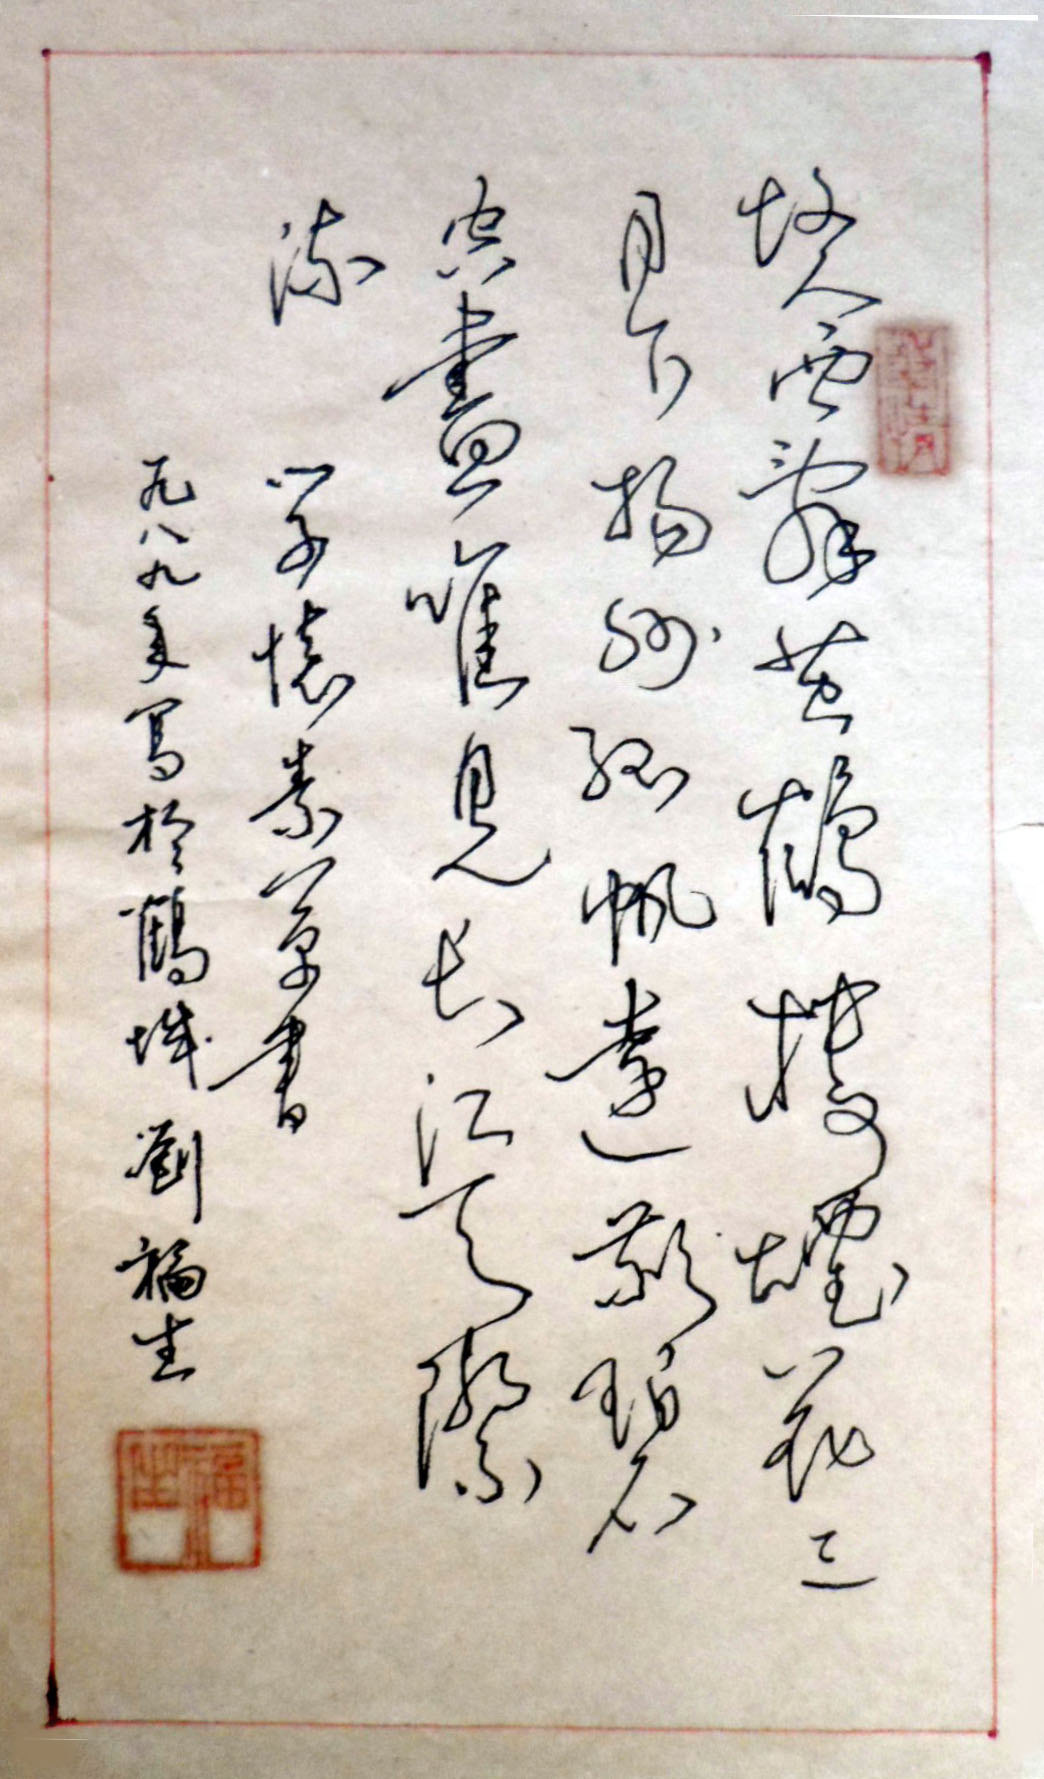 故人西辭黃鶴樓煙花三
月下揚州孤帆遠影碧
空盡唯見長江天際
流 學懷素草書
一九八九年寫於鶴城 劉福生